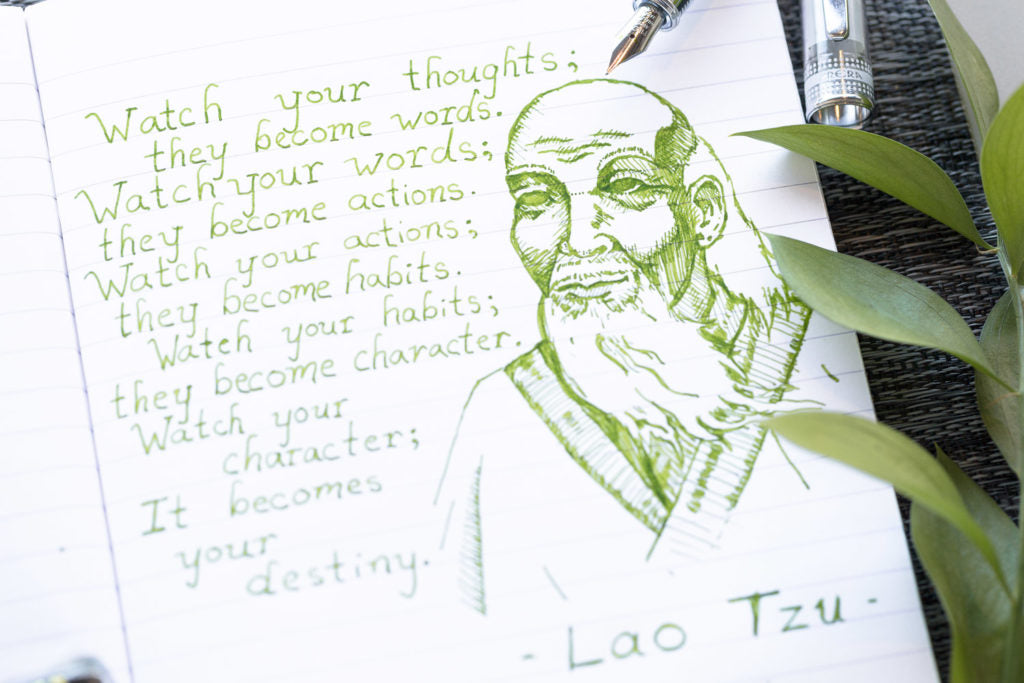 Watch your thoughts;
they become words.
Watch your words;
they become actions.
Watch your actions;
they become habits.
Watch your habits;
they become character.
Watch your
character;
It becomes
your
destiny.
- Lao Tzu -